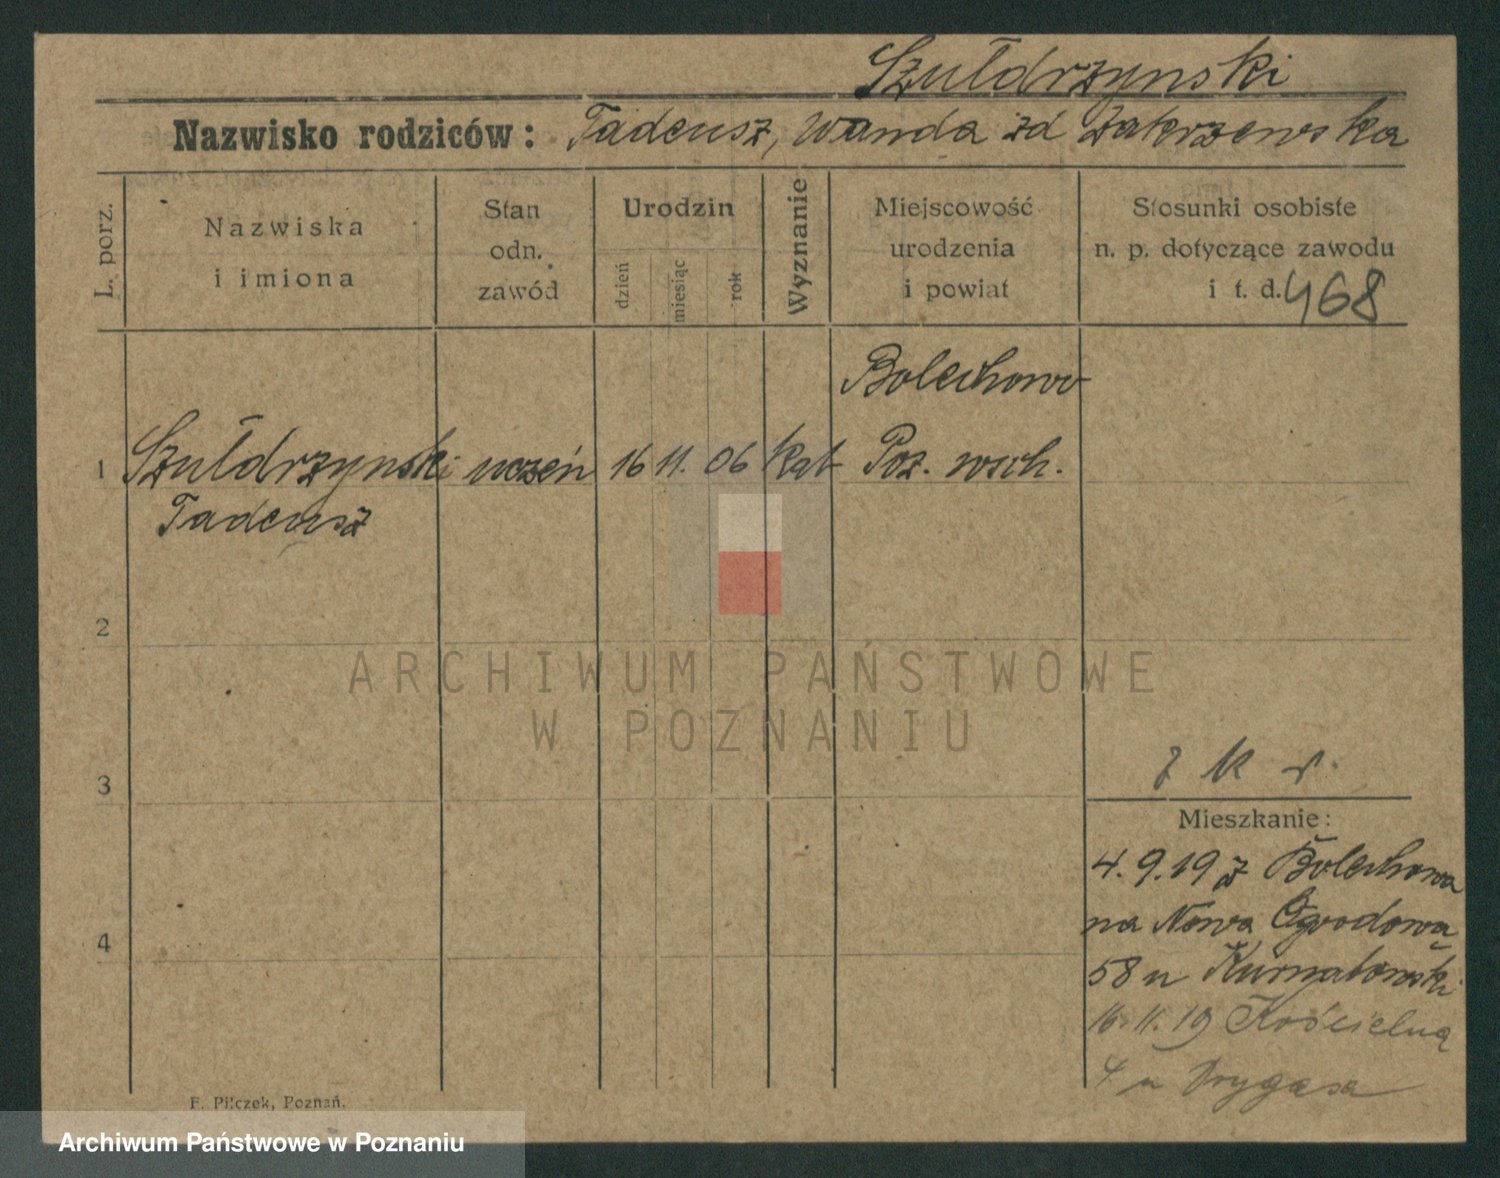 Szułdrzynski
Nazwisko rodziców: Tadeusz, Wanda zd Zakrzewska
L. porz.
Nazwiska
i imiona
Stan
odn.
zawód
Urodzin
dzień
miesiąc
rok
Wyznanie
Miejscowość
urodzenia
i powiat
Stosunki osobiste
n. p. dotyczące zawodu
i t. d. 468
Bolechowo
1 Szułdrzynski uczeń 16 11. 06 kat Poz. wsch.
Tadeusz
2
ARCHIWUM PAŃSTWOWE
W POZNANIU
3
4
Mieszkanie:
4.9.19 z Bolechowa
na Nowa Ogrodową
58 u Kurnatowski
16.11.19 Kościelną
4 u Drygasa
F. Pilczek, Poznań.
Archiwum Państwowe w Poznaniu